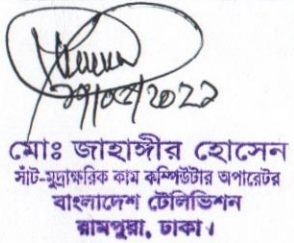 মোঃ জাহাঙ্গীর হোসেন
সাঁট-মুদ্রাক্ষরিক কাম কম্পিউটার অপারেটর
বাংলাদেশ টেলিভিশন
রামপুরা, ঢাকা।